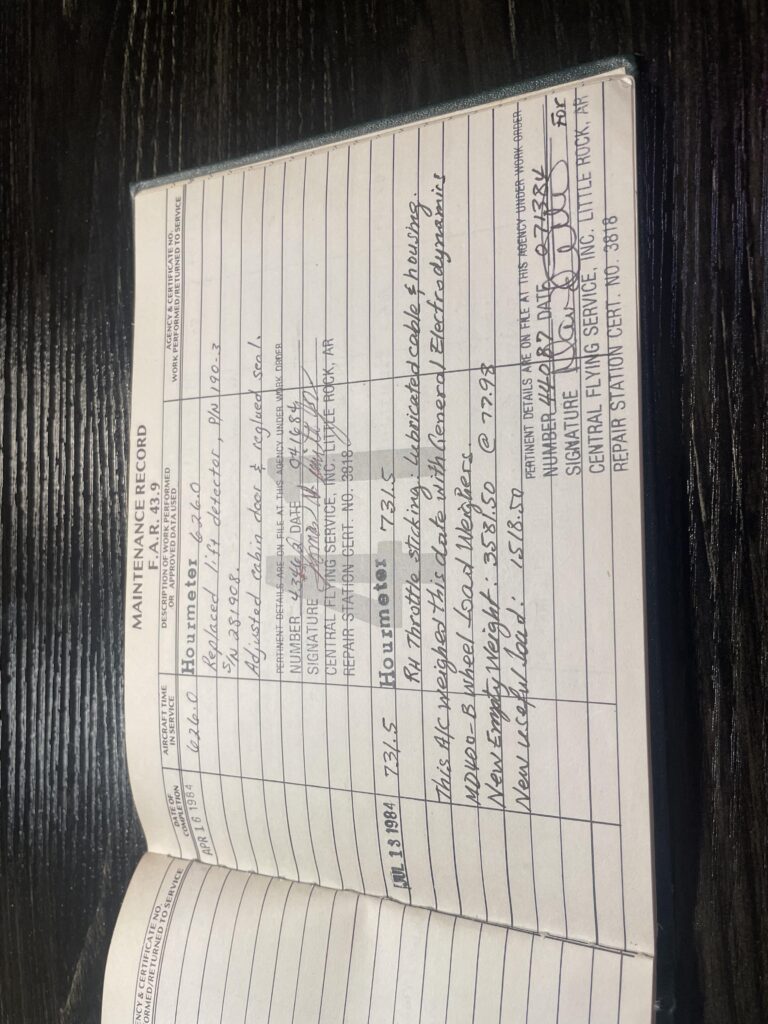 NCY & CERTIFICATE NO.
ORMED/RETURNED TO SERVICE
MAINTENANCE RECORD
F.A.R. 43.9
DATE OF COMPLETION
AIRCRAFT TIME IN SERVICE
DESCRIPTION OF WORK PERFORMED OR APPROVED DATA USED
AGENCY & CERTIFICATE NO. WORK PERFORMED/RETURNED TO SERVICE
APR 16 1984 626.0 Hourmeter 626.0
Replaced lift detector, P/N 190-3
S/N 281908.
Adjusted cabin door & reglued seal.
PERTINENT DETAILS ARE ON FILE AT THIS AGENCY UNDER WORK ORDER
NUMBER DATE 041684
SIGNATURE
CENTRAL FLYING SERVICE, INC. LITTLE ROCK, AR
REPAIR STATION CERT. NO. 3818
JUL 13 1984 731.5 Hourmeter 731.5
RH Throttle sticking: lubricated cable & housing.
This A/C weighed this date with General Electrodynamics
MD400-B Wheel Load Weighers.
New Empty Weight: 3581.50 @ 77.93
New useful load: 1518.50
PERTINENT DETAILS ARE ON FILE AT THIS AGENCY UNDER WORK ORDER
NUMBER 44087 DATE 071384
SIGNATURE For
CENTRAL FLYING SERVICE, INC. LITTLE ROCK, AR
REPAIR STATION CERT. NO. 3818